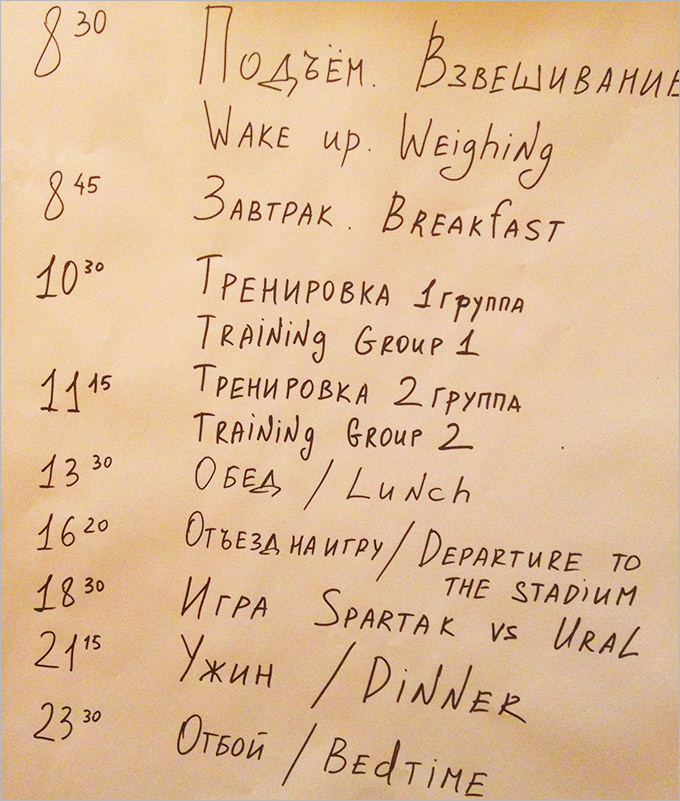 8 30 Подъём. Взвешивание
Wake up. Weighing
8 45 Завтрак. Breakfast
10 30 Тренировка 1 группа
Training Group 1
11 15 Тренировка 2 группа
Training Group 2
13 30 Обед / Lunch
16 20 Отъезд на игру / Departure to
the stadium
18 30 Игра Spartak vs Ural
21 15 Ужин / Dinner
23 30 Отбой / Bedtime